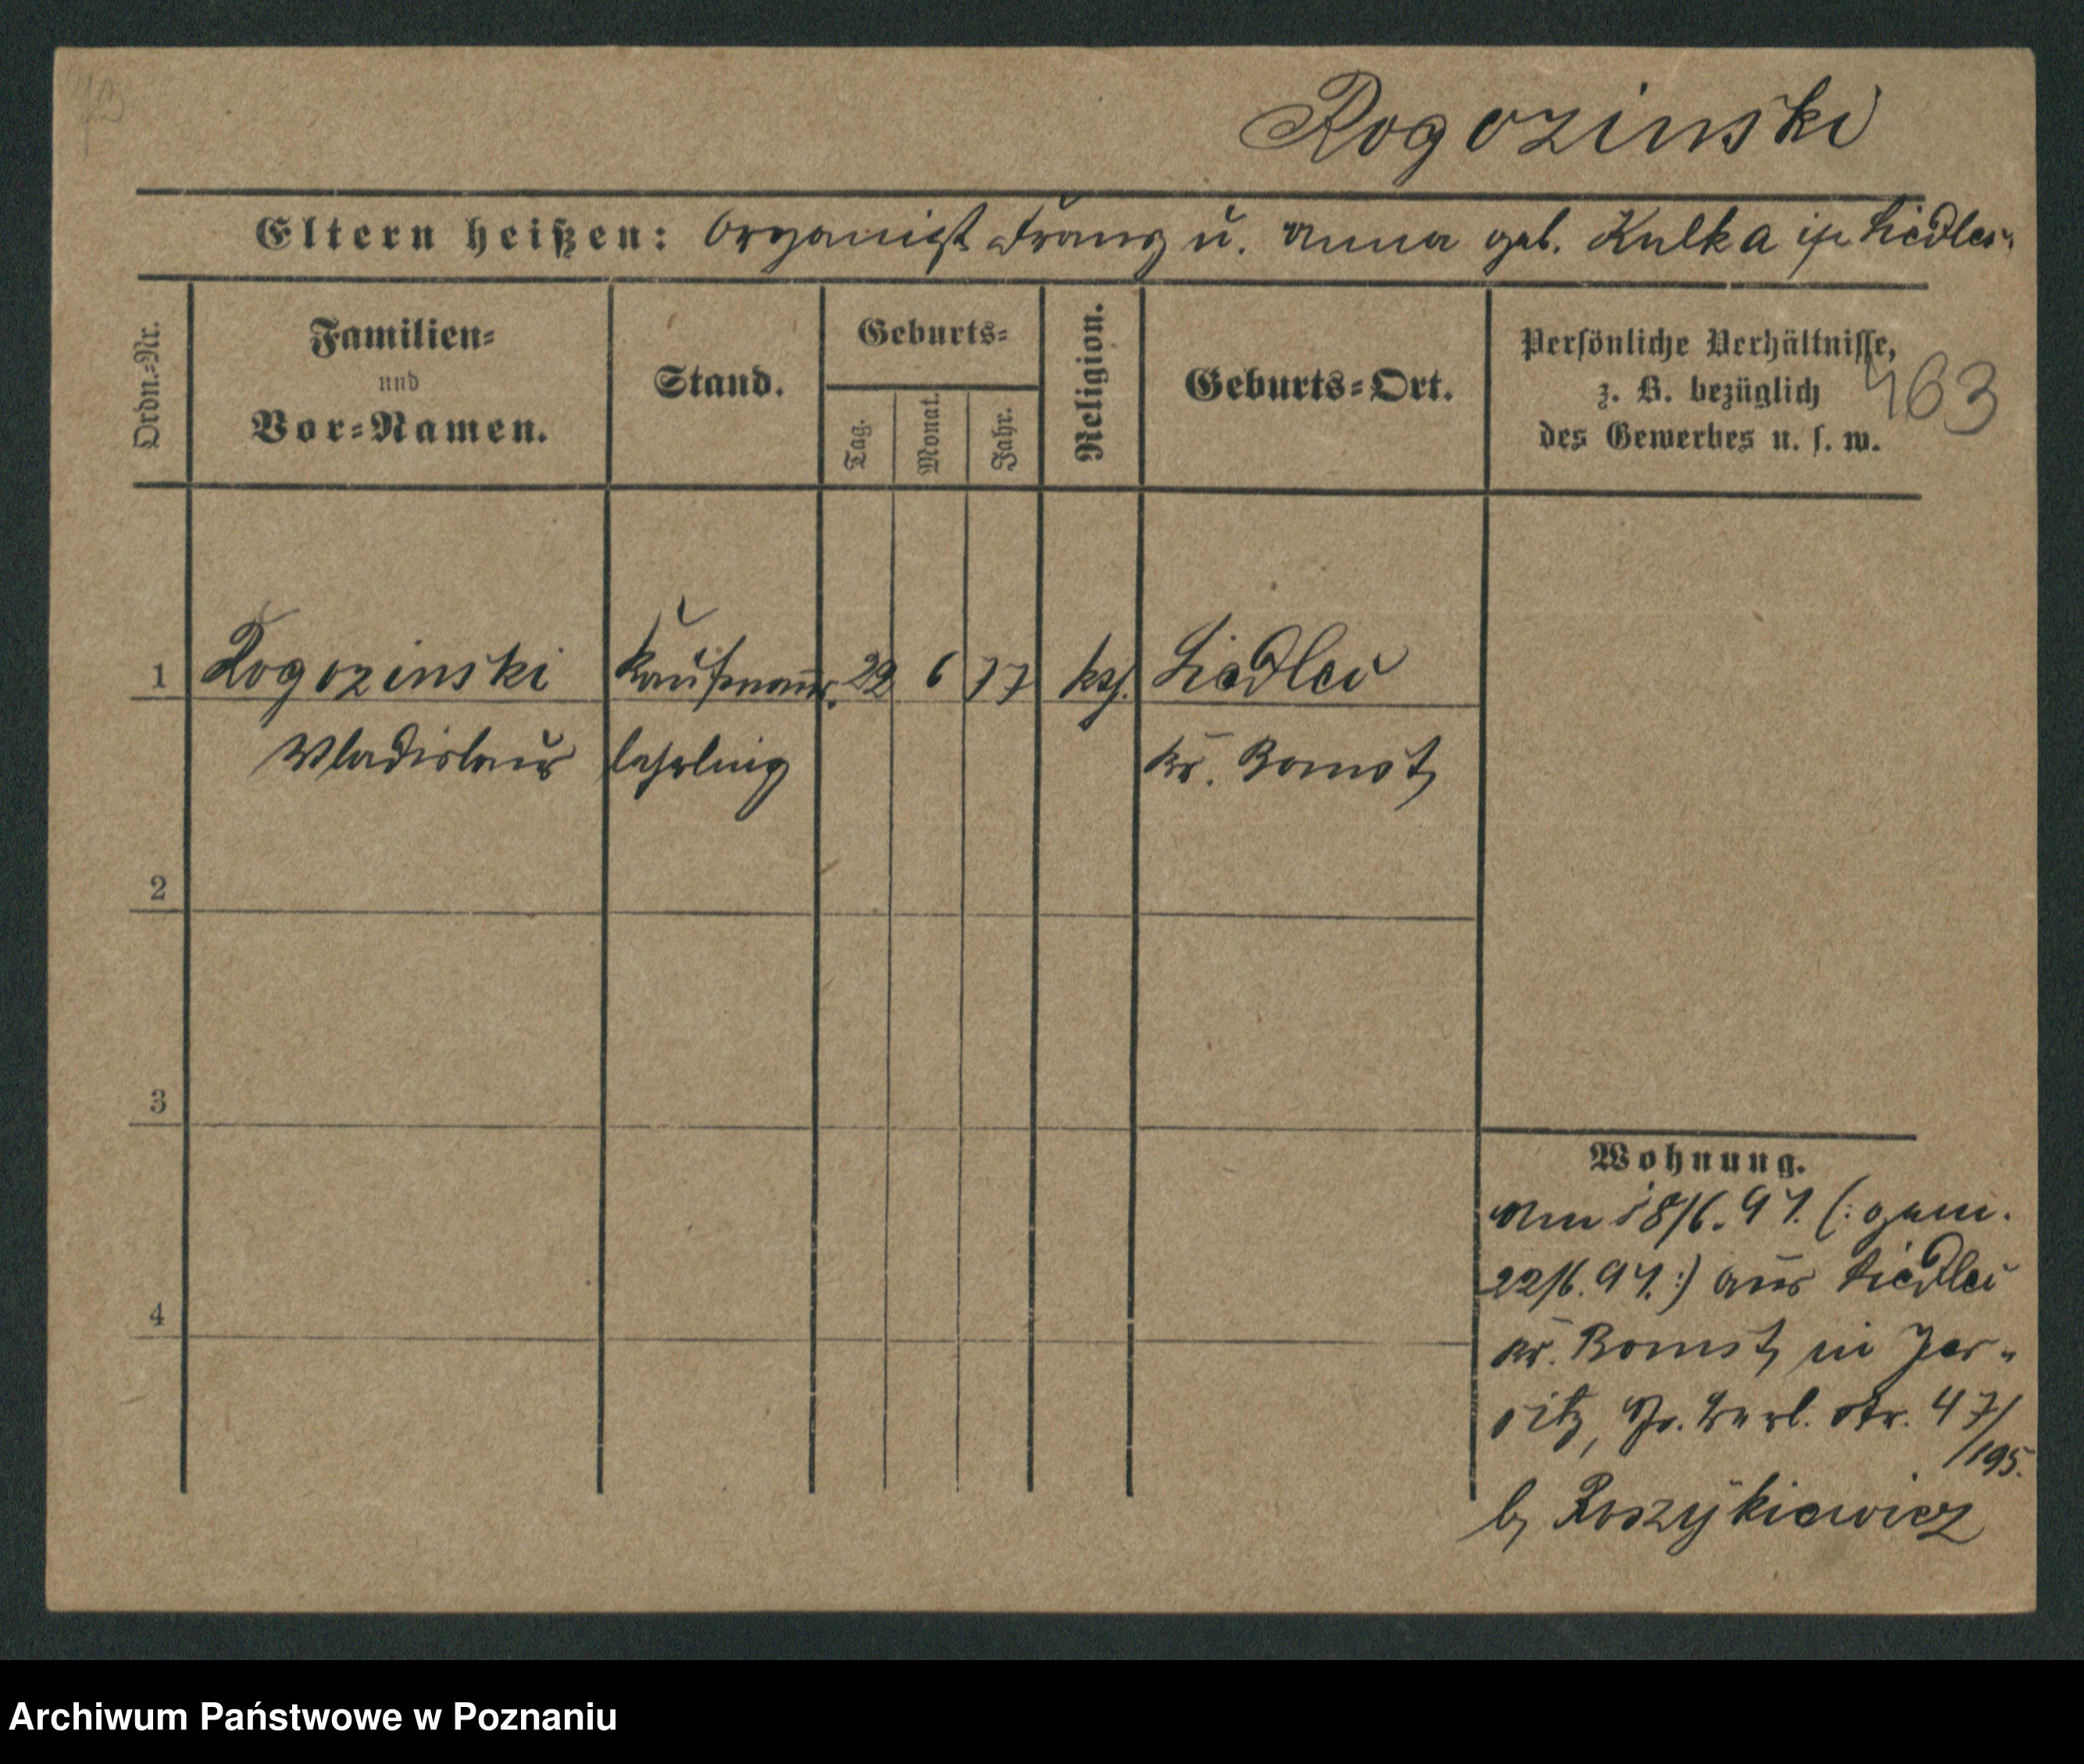 Rogozinski
Eltern heißen: Organist Franz u. Anna geb. Kulka in Siedlec
Ordn.-Nr.
Familien-
und
Vor-Namen.
Stand.
Geburts-
Tag.
Monat.
Jahr.
Religion.
Geburts-Ort.
Persönliche Verhältnisse,
z. B. bezüglich
des Gewerbes u. s. w.
463
1 Rogozinski Kaufmanns 22 6 77 kth. Siedlec
Wladislaus lehrling Kr. Bomst
2
3
4
Wohnung.
Am 18/6. 94. (: gem.
22/6. 94. :) aus Siedlec
Kr. Bomst in Jer-
sitz, Gr. Berl. Str. 47/
/195.
b. Roszykiewicz
Archiwum Państwowe w Poznaniu